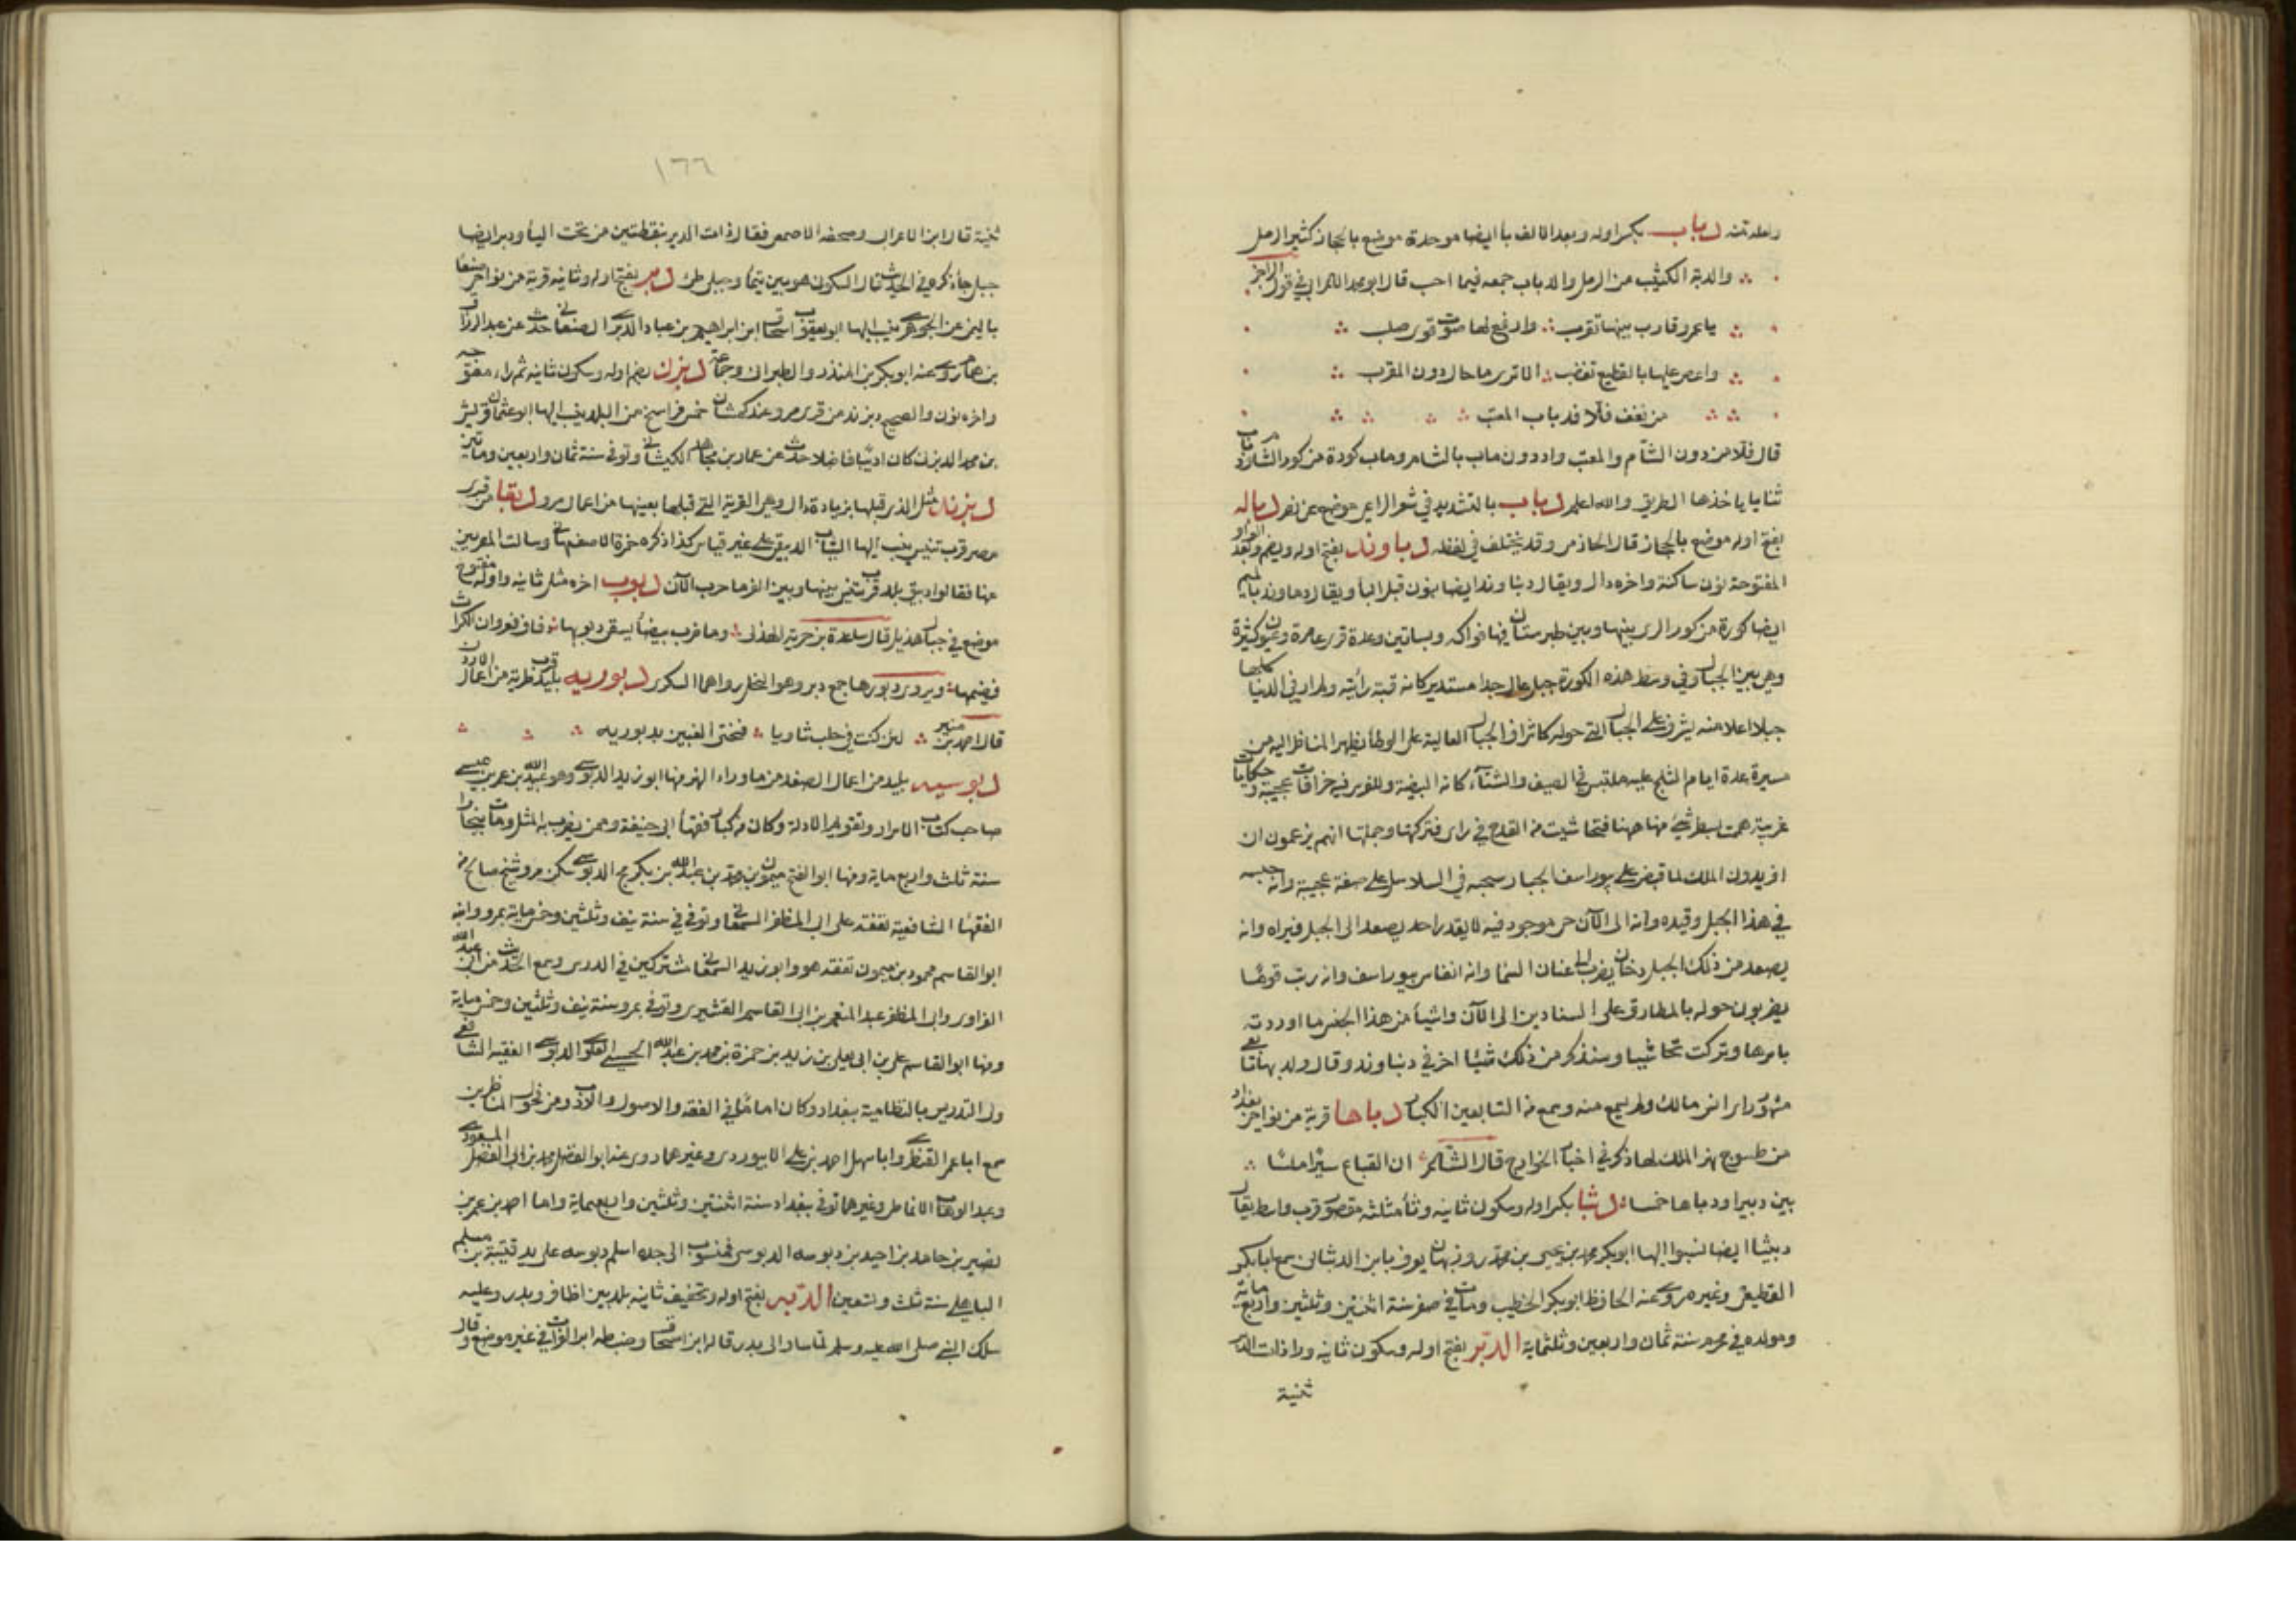 دباب بكسر اوله وبعد الالف باايضا موحدة موضع بالحجاز كثير الرمل
والدبة الكثيب من الرمل والدباب جمعه فيما احب قال ابو محمد الاعرابي في قول الراجز
يا عمرو قارب بينها تقرب وارفع لها صوت قوي صلب
واعص عليها بالقطيع تغضب الا ترى ما حال دون المقرب
من نعف فلا فدباب المعتب
قال فلا من دون الشام والمعتب واد دون ماب بالشام وماب كورة من كور الشام
ثنايا ياخذها الطريق والله اعلم دباب بالتشديد في شعر الراعي موضع عن نصر دباله
بفتح اوله موضع بالحجاز قال الحازمي وقد يختلف في لفظه دباوند بفتح اوله ويضم وبعد الواو
المفتوحة نون ساكنة واخره دال ويقال دنباوند ايضا بنون قبل البا ويقال دماوند بالميم
ايضا كورة من كور الري بينها وبين طبرستان فيها فواكه وبساتين وعدة قرى عامرة وعيون كثيرة
وهي بين الجبال وفي وسط هذه الكورة جبل عال جدا مستدير كانه قبة رايته ولم ار في الدنيا كلها
جبلا اعلا منه يشرف على الجبال التي حوله كاشراف الجبال العالية على الوطا يظهر للناظر اليه من
مسيرة عدة ايام الثلج عليه ملتبس في الصيف والشتاء كانه البيضة وللفرس فيه خرافات عجيبة وحكايات
غريبة هممت بسطر شئ منها ههنا فتحاشيت من القدح في راى فتركتها وجملتها انهم يزعمون ان
افريدون الملك لما قبض على بيوراسف الجبار سجنه في السلاسل على صفة عجيبة وانه حبسه
في هذا الجبل وقيده وانه الى الآن حي موجود فيه لا يقدر احد يصعد الى الجبل فيراه وانه
يصعد من ذلك الجبل دخان يضرب الى عنان السما وانه انفاس بيوراسف وانه رتب قوما
يضربون حوله بالمطارق على السنادين الى الآن واشيا من هذا الجنس ما اوردته
باسرها وتركت تحاشيا وسنذكر من ذلك شيئا اخر في دنباوند وقال ولد بها تابعي
مشهور راى انس بن مالك ولم يسمع منه وسمع من التابعين الكبار دباها قرية من نواحي بغداد
من طسوج نهر الملك لها ذكر في اخبار الخوارج قال الشاعر ان القباع سار سيرا ملسا
بين دبيرا ودباها خمسا دبثا بكسر اوله وسكون ثانيه وثا مثلثة مقصور قرب واسط يقال
دبيثا ايضا نسبوا اليها ابو بكر محمد بن يحيى بن محمد بن روزبهان يعرف بابن الدبثاني سمع ابا بكر
القطيعي وغيره روى عنه الحافظ ابو بكر الخطيب ومات في صفر سنة اثنتين وثلثين واربع ماية
ومولده في محرم سنة ثمان واربعين وثلثماية الدبر بفتح اوله وسكون ثانيه ورا ذات الدبر
ثنية
١٦٦
ثنية قال ابن الاعرابي وصحفه الاصمعي فقال ذات الدير بنقطتين من تحت اليا ودبر ايضا
جبل جاء ذكره في الحديث قال السكوني هو بين تيما وجبلي طي دبر بفتح اوله وثانيه قرية من نواحي صنعا
باليمن عن الجوهري ينسب اليها ابو يعقوب اسحاق بن ابراهيم بن عباد الدبري الصنعاني حدث عن عبد الرزاق
بن همام روى عنه ابو بكر بن المنذر والطبراني وجماعة دبزن بضم اوله وسكون ثانيه ثم زاء مفتوحة
واخره نون والصحيح دبزند من قرى مرو عند كمشان خمس فراسخ من البلد ينسب اليها ابو عثمان قريش
بن محمد الدبزني كان اديبا فاضلا حدث عن عمار بن مجاهد الكمشاني وتوفي سنة ثمان واربعين ومايتين
دبزند مثل الذي قبلها بزيادة دال وهي القرية التي قبلها بعينها من اعمال مرو دبقا من قرى
مصر قرب تنيس ينسب اليها الثياب الدبيقي على غير قياس كذا ذكره حمزة الاصفهاني وسالت المصريين
عنها فقالوا دبيق بلد قرب تنيس بينها وبين الفرما خرب الآن دبوب اخره مثل ثانيه واوله مفتوح
موضع في جبال هذيل قال ساعدة بن جوية الهذلي وما ضرب بيضا يسقي دبوبها دفاق فعروان الكراث
فضيمها ويروى دبورها جمع دبر وهو النخل رواهما السكري دبورية بليد قرب طبرية من اعمال الاردن
قال احمد بن منير لئن كنت في حلب ثاويا فنحني الغبين بدبوريه
دبوسية بليد من اعمال الصغد من ما وراء النهر منها ابو زيد الدبوسي وهو عبيد الله بن عمر بن عيسى
صاحب كتاب الاسرار وتقويم الادلة وكان من كبار فقها ابي حنيفة وممن يضرب به المثل ومات ببخارا
سنة ثلث واربع ماية ومنها ابو الفتح ميمون بن محمد بن عبد الله بن بكر بن مج الدبوسي سكن مرو شيخ صالح من
الفقها الشافعية تفقه على ابي المظفر السمعاني وتوفي في سنة نيف وثلثين وخمس ماية بمرو وابنه
ابو القاسم محمود بن ميمون تفقه هو وابو زيد السمعاني مشتركين في الدرس وسمع الحديث من ابي عبد الله
الفراوي وابي المظفر عبد المنعم بن ابي القاسم القشيري وتوفي بمرو سنة نيف وثلثين وخمس ماية
ومنها ابو القاسم علي بن ابي يعلى بن زيد بن حمزة بن محمد بن عبد الله الحسيني العلوي الدبوسي الفقيه الشافعي
ولي التدريس بالنظامية ببغداد وكان اماما في الفقه والاصول والادب ومن فحول المناظرين
سمع ابا عمرو القنطري وابا سهل احمد بن علي الابيوردي وغيرهما روى عنه ابو الفضل محمد بن ابي الفضل المسعودي
وعبد الوهاب الانماطي وغيرهما توفي ببغداد سنة اثنتين وثلثين واربعماية واما احمد بن عمر بن
نصير بن حامد بن احيد بن دبوسه الدبوسي فمنسوب الى جده اسلم دبوسه على يد قتيبة بن مسلم
الباهلي سنة ثلث وتسعين الدبه بفتح اوله وتخفيف ثانيه بلد بين اظافر وبدر وعليه
سلك النبي صلى الله عليه وسلم لما سار الى بدر قاله ابن اسحاق وضبطه ابن الفرات في غير موضع وقال